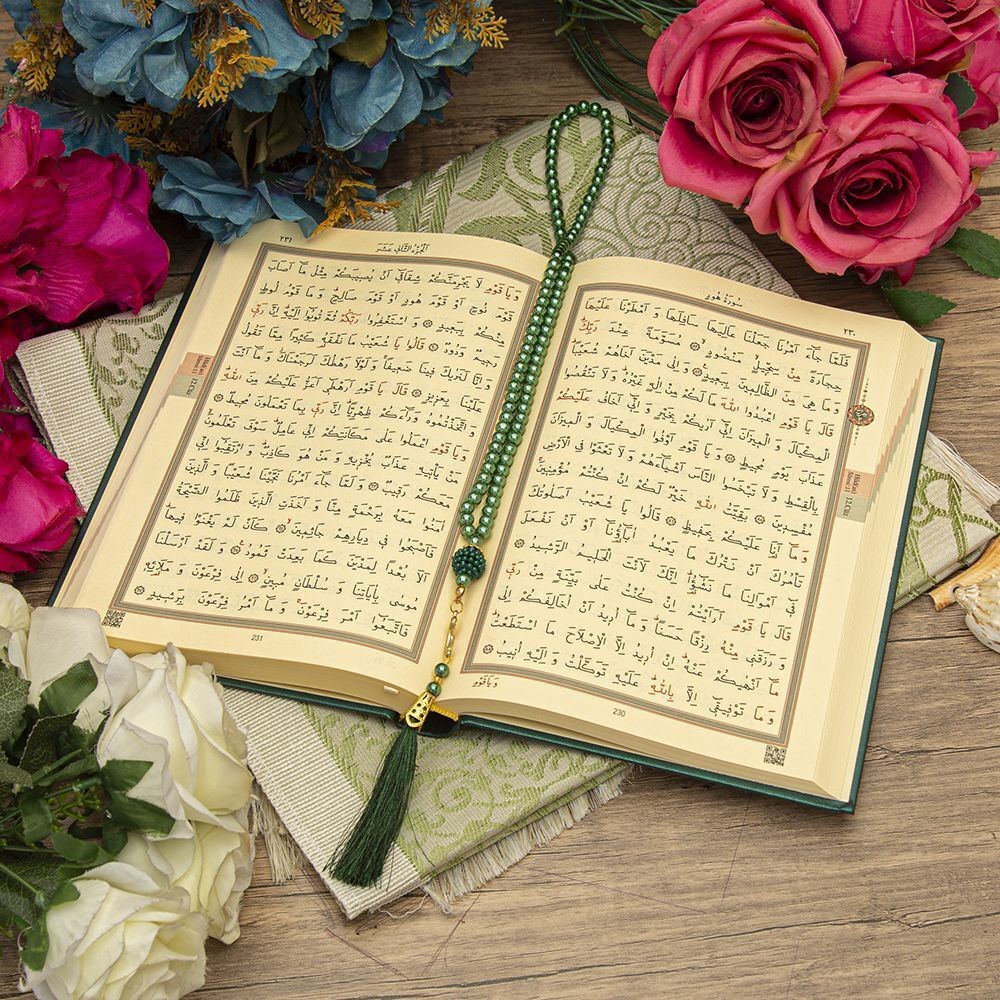 سُورَةُ هُودٍ
٢٣٠
فَلَمَّا جَآءَ اَمْرُنَا جَعَلْنَا عَالِيَهَا سَافِلَهَا وَ اَمْطَرْنَا عَلَيْهَا
حِجَارَةً مِنْ سِجّ۪يلٍ مَنْضُودٍ ۞ مُسَوَّمَةً عِنْدَ رَبِّكَ
وَ مَا هِيَ مِنَ الظَّالِم۪ينَ بِبَع۪يدٍ ۞ وَ اِلٰى مَدْيَنَ اَخَاهُمْ شُعَيْبًا
قَالَ يَا قَوْمِ اعْبُدُوا اللّٰهَ مَا لَكُمْ مِنْ اِلٰهٍ غَيْرُهُ وَ لَا تَنْقُصُوا
الْمِكْيَالَ وَ الْم۪يزَانَ اِنّ۪ى اَرٰيكُمْ بِخَيْرٍ وَ اِنّ۪ى اَخَافُ عَلَيْكُمْ
عَذَابَ يَوْمٍ مُح۪يطٍ ۞ وَ يَا قَوْمِ اَوْفُوا الْمِكْيَالَ وَ الْم۪يزَانَ
بِالْقِسْطِ وَ لَا تَبْخَسُوا النَّاسَ اَشْيَآءَهُمْ وَ لَا تَعْثَوْا فِى الْاَرْضِ
مُفْسِد۪ينَ ۞ بَقِيَّتُ اللّٰهِ خَيْرٌ لَكُمْ اِنْ كُنْتُمْ مُؤْمِن۪ينَ
وَ مَآ اَنَا عَلَيْكُمْ بِحَف۪يظٍ ۞ قَالُوا يَا شُعَيْبُ اَصَلٰوتُكَ
تَأْمُرُكَ اَنْ نَتْرُكَ مَا يَعْبُدُ اٰبَآؤُنَا اَوْ اَنْ نَفْعَلَ
ف۪ى اَمْوَالِنَا مَا نَشٰٓؤُا اِنَّكَ لَاَنْتَ الْحَل۪يمُ الرَّش۪يدُ ۞
قَالَ يَا قَوْمِ اَرَاَيْتُمْ اِنْ كُنْتُ عَلٰى بَيِّنَةٍ مِنْ رَبّ۪ى
وَ رَزَقَن۪ى مِنْهُ رِزْقًا حَسَنًا وَ مَآ اُر۪يدُ اَنْ اُخَالِفَكُمْ اِلٰى
مَآ اَنْهٰيكُمْ عَنْهُ اِنْ اُر۪يدُ اِلَّا الْاِصْلَاحَ مَا اسْتَطَعْتُ
وَ مَا تَوْف۪يق۪ى اِلَّا بِاللّٰهِ عَلَيْهِ تَوَكَّلْتُ وَ اِلَيْهِ اُن۪يبُ ۞
وَيَا قَوْمِ
230
12.Cüz
اَلْجُزْءُ الثَّان۪ى عَشَرَ
٢٣١
وَ يَا قَوْمِ لَا يَجْرِمَنَّكُمْ شِقَاق۪ٓى اَنْ يُص۪يبَكُمْ مِثْلُ مَآ اَصَابَ
قَوْمَ نُوحٍ اَوْ قَوْمَ هُودٍ اَوْ قَوْمَ صَالِحٍ وَ مَا قَوْمُ لُوطٍ
مِنْكُمْ بِبَع۪يدٍ ۞ وَ اسْتَغْفِرُوا رَبَّكُمْ ثُمَّ تُوبُوٓا اِلَيْهِ اِنَّ رَبّ۪ى
رَح۪يمٌ وَدُودٌ ۞ قَالُوا يَا شُعَيْبُ مَا نَفْقَهُ كَث۪يرًا مِمَّا تَقُولُ
وَ اِنَّا لَنَرٰيكَ ف۪ينَا ضَع۪يفًا وَ لَوْلَا رَهْطُكَ لَرَجَمْنَاكَ وَ مَآ اَنْتَ
عَلَيْنَا بِعَز۪يزٍ ۞ قَالَ يَا قَوْمِ اَرَهْط۪ٓى اَعَزُّ عَلَيْكُمْ مِنَ اللّٰهِ
وَ اتَّخَذْتُمُوهُ وَرَآءَكُمْ ظِهْرِيًّا اِنَّ رَبّ۪ى بِمَا تَعْمَلُونَ مُح۪يطٌ ۞
وَ يَا قَوْمِ اعْمَلُوا عَلٰى مَكَانَتِكُمْ اِنّ۪ى عَامِلٌ سَوْفَ تَعْلَمُونَ
مَنْ يَأْت۪يهِ عَذَابٌ يُخْز۪يهِ وَ مَنْ هُوَ كَاذِبٌ وَ ارْتَقِبُوٓا اِنّ۪ى
مَعَكُمْ رَق۪يبٌ ۞ وَ لَمَّا جَآءَ اَمْرُنَا نَجَّيْنَا شُعَيْبًا وَ الَّذ۪ينَ
اٰمَنُوا مَعَهُ بِرَحْمَةٍ مِنَّا وَ اَخَذَتِ الَّذ۪ينَ ظَلَمُوا الصَّيْحَةُ
فَاَصْبَحُوا ف۪ى دِيَارِهِمْ جَاثِم۪ينَ ۞ كَاَنْ لَمْ يَغْنَوْا ف۪يهَا
اَلَا بُعْدًا لِمَدْيَنَ كَمَا بَعِدَتْ ثَمُودُ ۞ وَ لَقَدْ اَرْسَلْنَا
مُوسٰى بِاٰيَاتِنَا وَ سُلْطَانٍ مُب۪ينٍ ۞ اِلٰى فِرْعَوْنَ وَ مَلَا۬ئِه۪
فَاتَّبَعُوٓا اَمْرَ فِرْعَوْنَ وَ مَآ اَمْرُ فِرْعَوْنَ بِرَش۪يدٍ ۞
231
12.Cüz